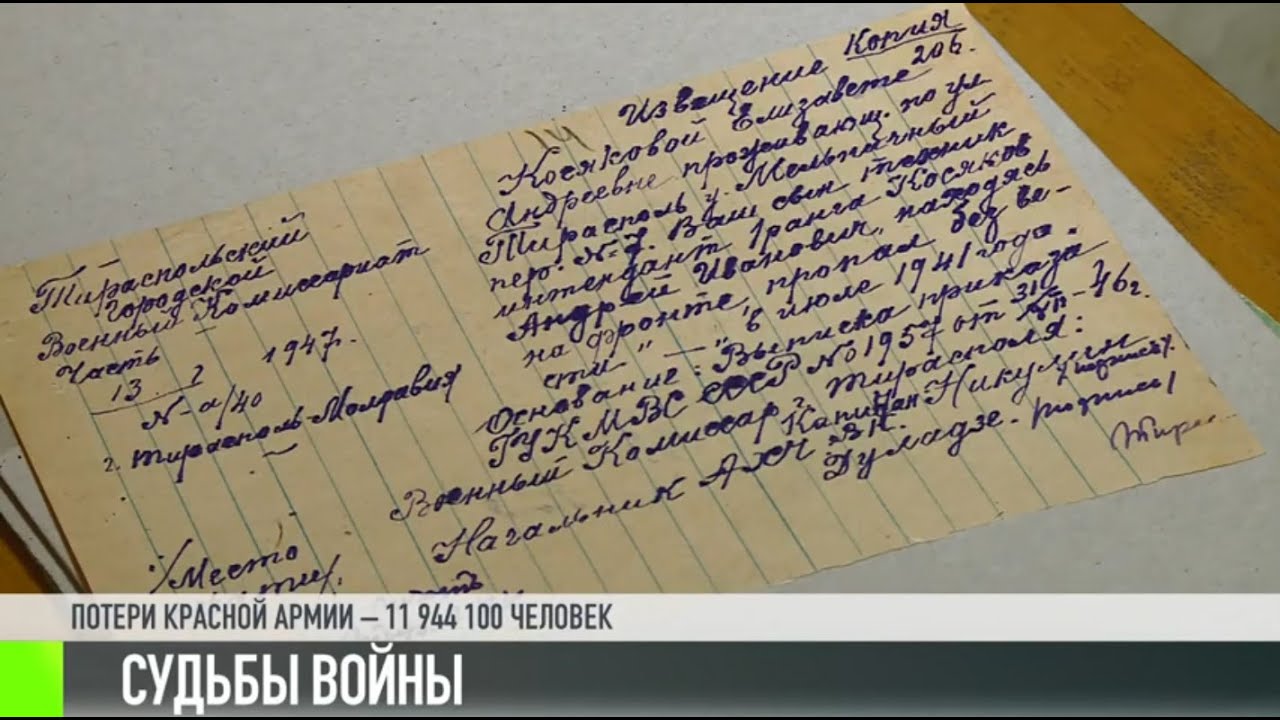 Копия
Извещение 206.
14
Косяковой Елизавете
Андреевне проживающ. по ул
Тирасполь у. Мельничный
пер. № 7. Ваш сын техник
интендант I ранга Косяков
Андрей Иванович, находясь
на фронте, пропал без ве-
сти " — " в июле 1941 года.
Основание: Выписка приказа
ГУК МВС СССР № 1957 от 31/XII-46 г.
Военный Комиссар г. Тирасполя:
Капитан Никулин /подпись/.
Начальник АХЧ
Думадзе. подпись/
Тираспольский
Городской
Военный Комиссариат
Часть —
13 2 1947.
N-а/40
г. Тирасполь-Молдавия
/Место
ПОТЕРИ КРАСНОЙ АРМИИ – 11 944 100 ЧЕЛОВЕК
СУДЬБЫ ВОЙНЫ